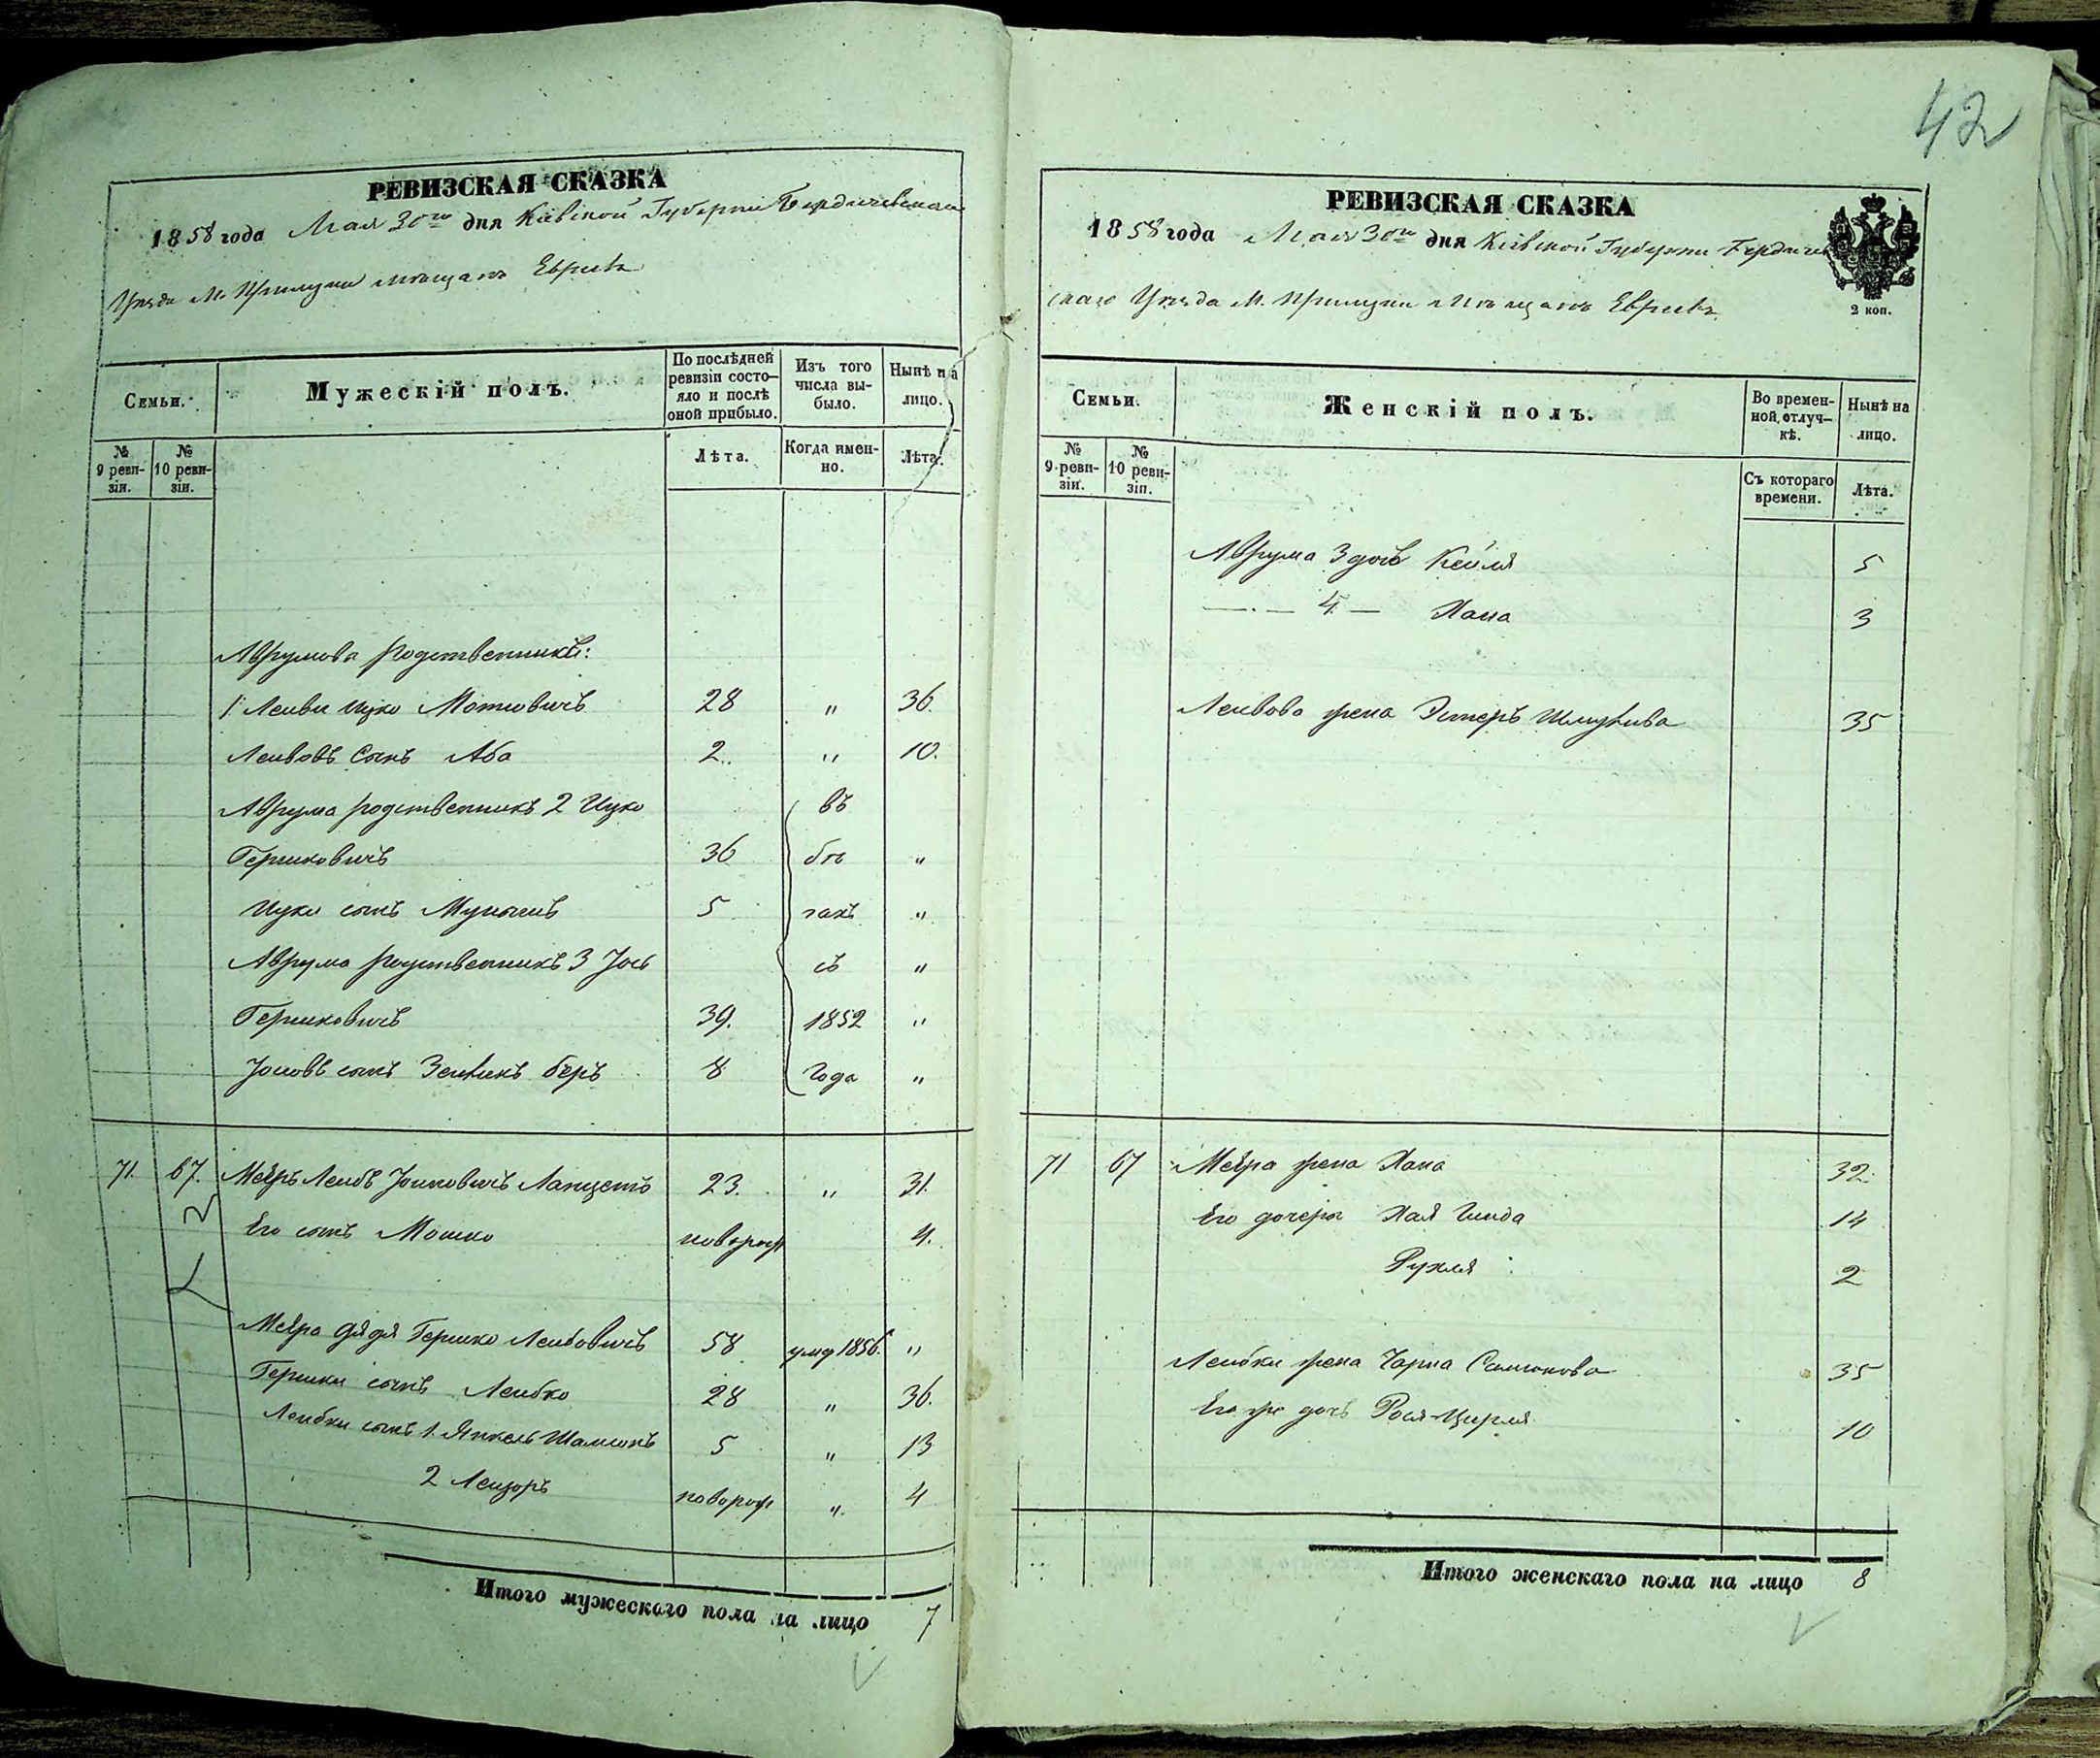 42
РЕВИЗСКАЯ СКАЗКА
1858 года Мая 30го дня Кіевской Губерніи Бердичевскаго
Уѣзда М. Прилуки мѣщанъ Евреевъ
Семьи.
Мужескій полъ.
По послѣдней ревизіи состо-
яло и послѣ
оной прибыло.
Изъ того
числа вы-
было.
Нынѣ на
лицо.
№
9 реви-
зіи.
№
10 реви-
зіи.
Лѣта.
Когда имен-
но.
Лѣта.
Аврумова родственники:
1. Лейви Ицко Мотковичъ 28 " 36.
Лейвовъ Сынъ Аба 2. " 10.
Аврума родственникъ 2 Ицко въ
Гершковичъ 36 бѣ "
Ицки сынъ 5 гахъ "
Аврума родственникъ 3 Іось съ "
Гершковичъ 39. 1852 "
Іосовъ сынъ беръ 8 Года "
71. 67. Меѣръ Лейбъ Іосковичъ 23. " 31.
Его сынъ Мошко новорож 4.
Меѣра дядя Гершко Лейбовичъ 58 уму 1856. "
Гершки сынъ Лейбко 28 " 36.
Лейбки сынъ 1. Янкель Шамсонъ 5 " 13
2 Лейзоръ новорож " 4
Итого мужескаго пола на лицо 7
РЕВИЗСКАЯ СКАЗКА
1858 года Мая 30го дня Кіевской Губерніи Бердичев
скаго Уѣзда М. Прилуки мѣщанъ Евреевъ
2 коп.
Семьи.
Женскій полъ.
Во времен-
ной отлуч-
кѣ.
Нынѣ на
лицо.
№
9 реви-
зіи.
№
10 реви-
зіи.
Съ котораго
времени.
Лѣта.
Аврума 3 дочь Кейля 5
— 4. — Хана 3
Лейвова жена Эстеръ 35
71 67 Меѣра жена Хана 32.
Его дочери Хая Гинда 14
Рухля 2
Лейбки жена Чарна 35
Его же дочь Рося-Цирля 10
Итого женскаго пола на лицо 8